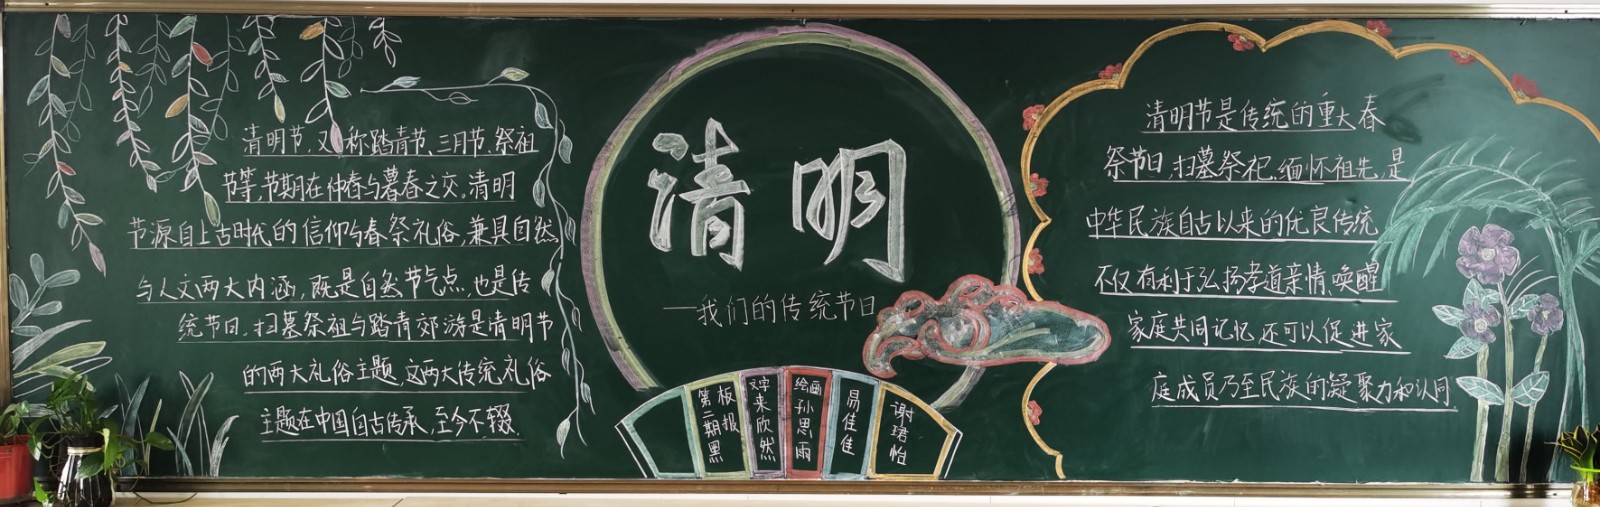 清明节,又称踏青节、三月节、祭祖
节等,节期在仲春与暮春之交。清明
节源自上古时代的信仰与春祭礼俗,兼具自然
与人文两大内涵,既是自然节气点,也是传
统节日,扫墓祭祖与踏青郊游是清明节
的两大礼俗主题,这两大传统礼俗
主题在中国自古传承,至今不辍
清明
——我们的传统节日
第二期黑
板报
文字
来欣然
绘画
孙思雨
易佳佳
谢珺怡
清明节是传统的重大春
祭节日,扫墓祭祀、缅怀祖先,是
中华民族自古以来的优良传统
不仅有利于弘扬孝道亲情、唤醒
家庭共同记忆,还可以促进家
庭成员乃至民族的凝聚力和认同